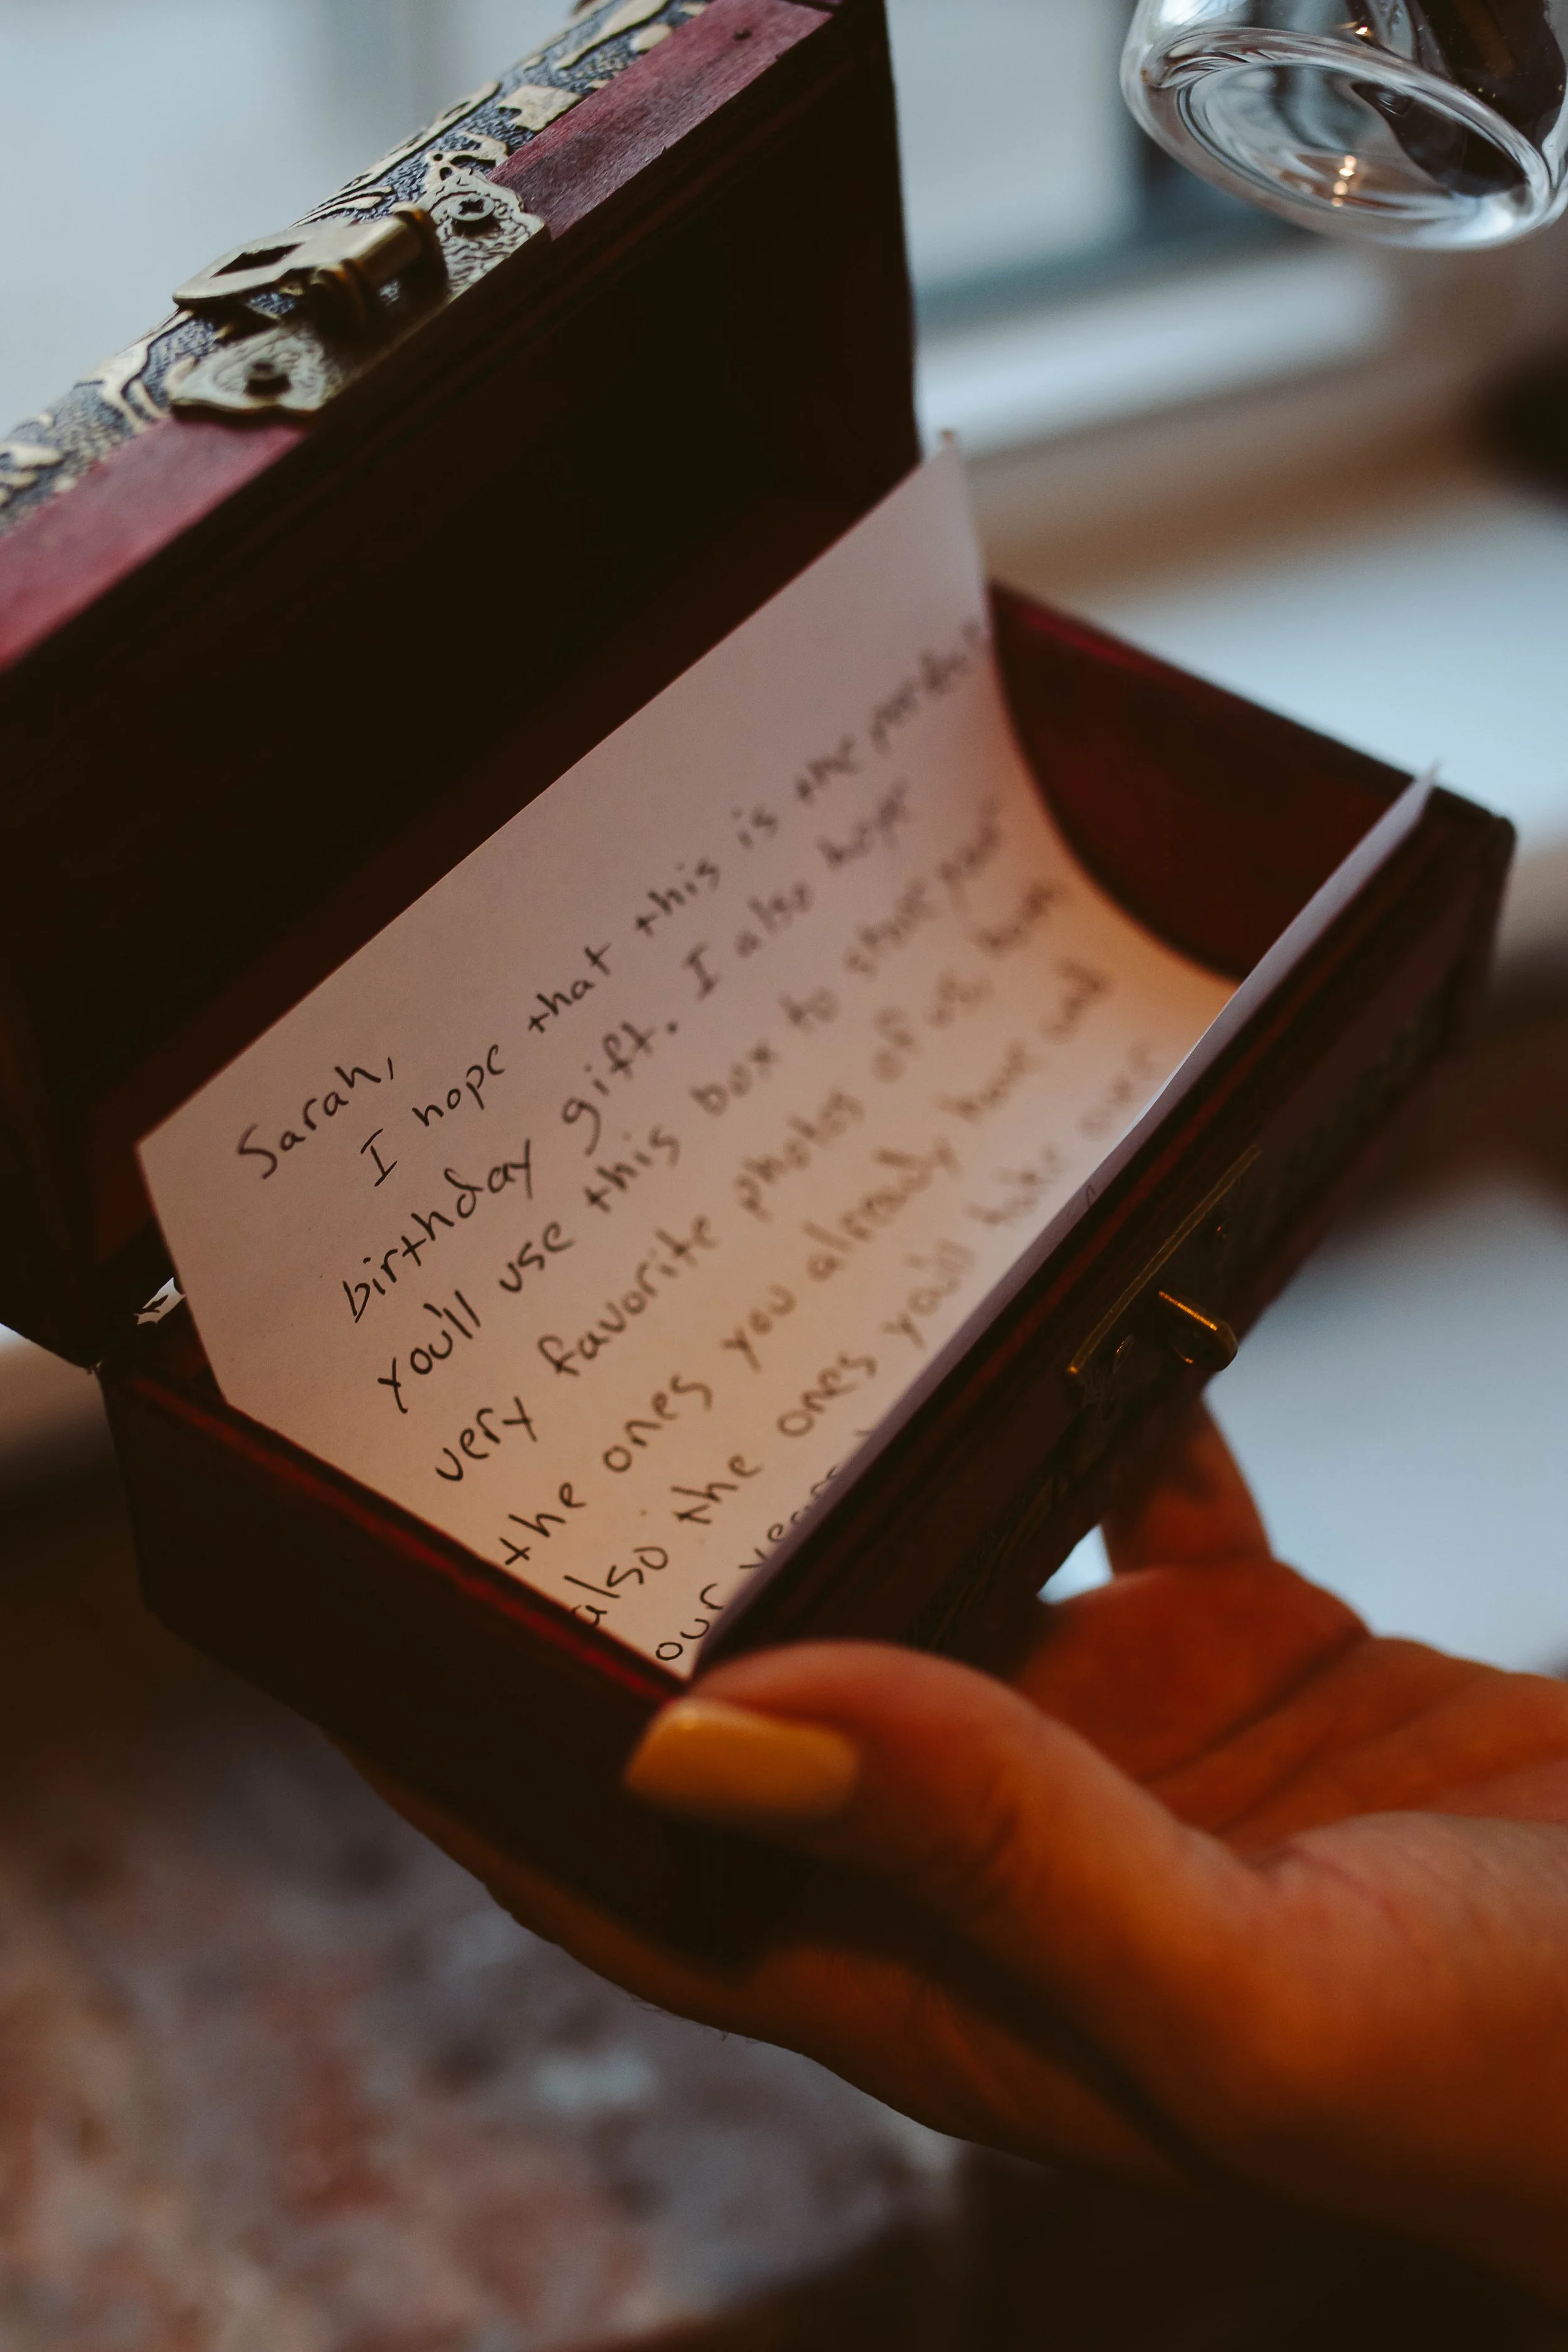 Sarah,
I hope that this is the perfect
birthday gift. I also hope
you'll use this box to store your
very favorite photos of us, both
the ones you already have and
also the ones you'll take over
our years